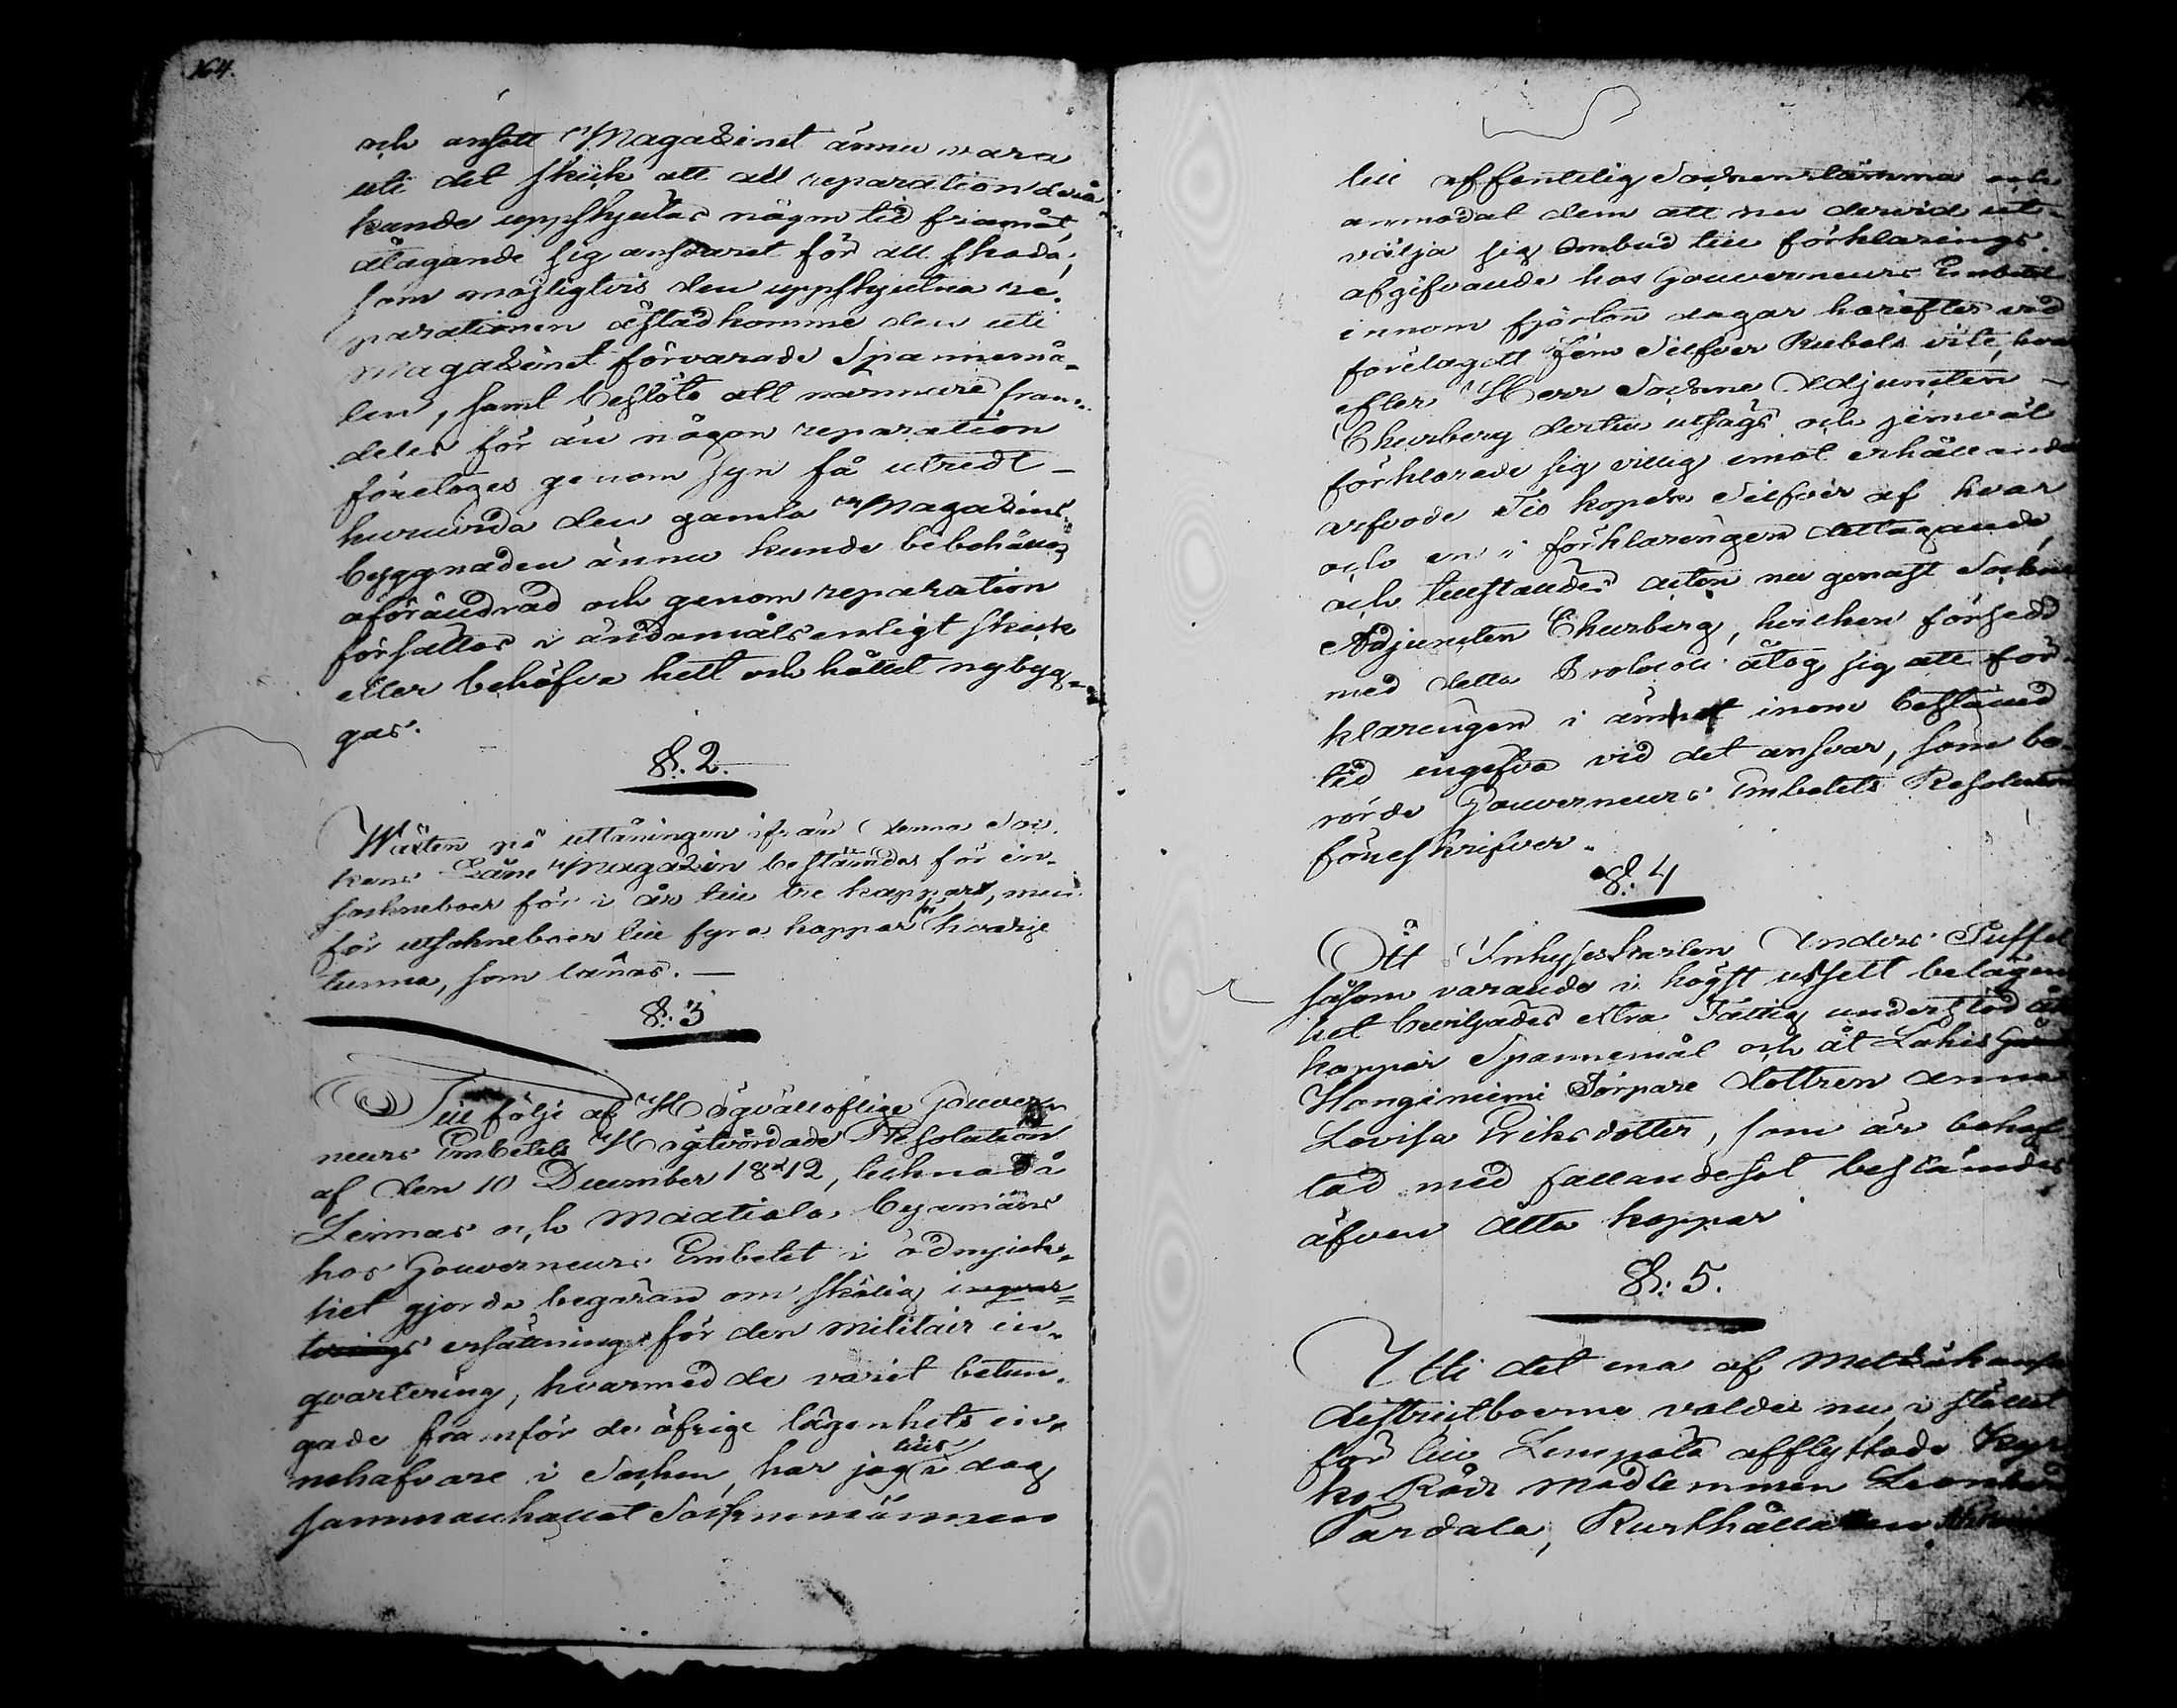 164.
och ansett Magazinet ännu vara
uti det skick att all reparation derå
kunde uppskjutas någon tid framåt,
åtagande sig ansvaret för all skada,
som möjligtvis den uppskjutna re-
parationen åstadkomme den uti
magazinet förvarade Spannemå-
len, samt beslöto att närmare fram-
deles för än någon reparation
företages genom syn få utredt
huruvida den gamla Magazins
byggnaden ännu kunde bibehållas
oförändrad och genom reparation
försättas i ändamålsenligt skick
eller behöfva helt och hållet nybyg-
gas.
§. 2.
Wäxten på utlåningen ifrån denna Soc-
kens Låne Magazin bestämdes för in-
sockneboer för i år till tre kappar, men
för utsockneboer till fyra kappar för hvarje
tunna, som lånas.
§. 3
Till följe af Högvällofliga Gouver-
neurs Embetets Högtvördade Resolution
af den 10 December 1842, tecknad å
Leimas och Maatiala byamäns
hos Gouverneurs Embetet i ödmjuk-
het gjorda begäran om skälig inqvar-
terings ersättning för den militair in-
qvartering, hvarmed de varit betun-
gade framför de öfrige lägenhets in-
nehafvare i Socken, har jag till i dag
sammankallat Sockenmännen
till offentelig Sockenstämma och
anmodat dem att nu dervid ut-
välja sig Ombud till förklarings
afgifvande hos Gouverneurs Embetet
innom fjorton dagar härefter vid
förelagdt fem Silfver Rubels vite, hvar
efter Herr Sockne Adjuncten
Churberg dertill utsågs och jemväl
förklarade sig villig emot erhållande
arfvode Tio kopek Silfver af hvar
och en i förklaringen deltagande,
och tillstäldes acten nu genast Sockne
Adjuncten Churberg, hvilken försedd
med detta Protocoll åtog sig att för-
klaringen i ämnet inom bestämd
tid ingifva vid det ansvar, som be-
rörde Gouverneurs Embetets Resolution
föreskrifver.
§. 4
Åt Inhyses karlen Anders Tuffel
såsom varande i högst usselt belägen
het beviljades extra Fattig understöd åtta
kappar Spannemål och åt Lahis
Honginiemi Torpare dottren Anna
Lovisa Eriksdotter, som är behäf-
tad med fallandesot bestämdes
äfven åtta kappar
§. 5.
Uti det ena af
districtboerne valdes nu i stället
för till Lempälä afflyttade Kyr
ko Råds Medlemmen
Pardala, Rusthållaren